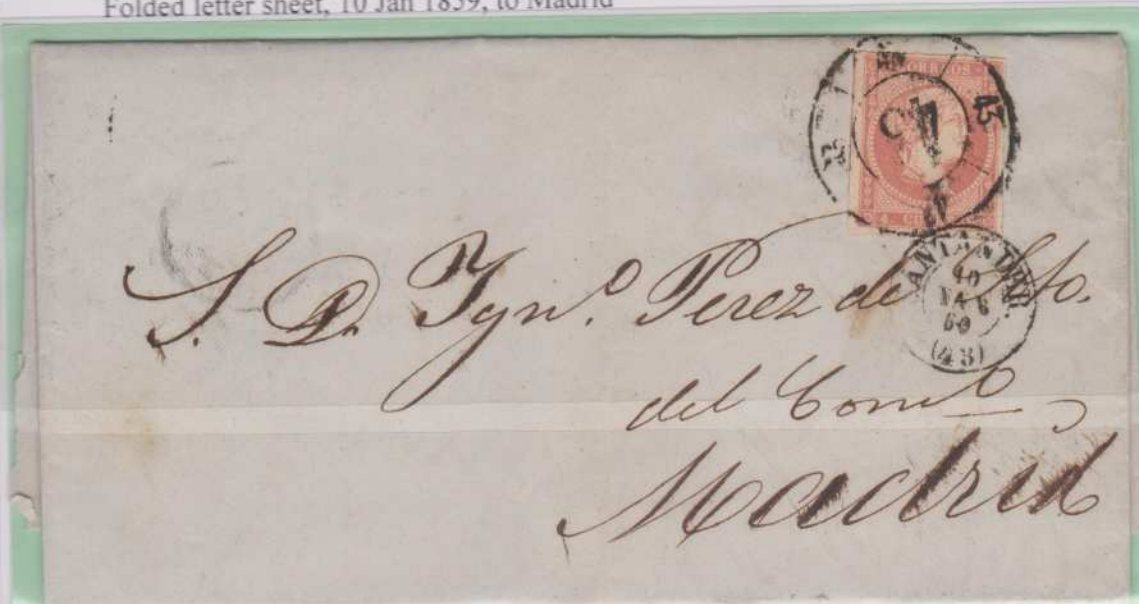 Folded letter sheet, 10 Jan 1859, to Madrid
CORREOS
43
43
4 C
SANTANDER.
10
60
(43)
S. D. Ygn.º Perez de Sto.
del Com.º
Madrid